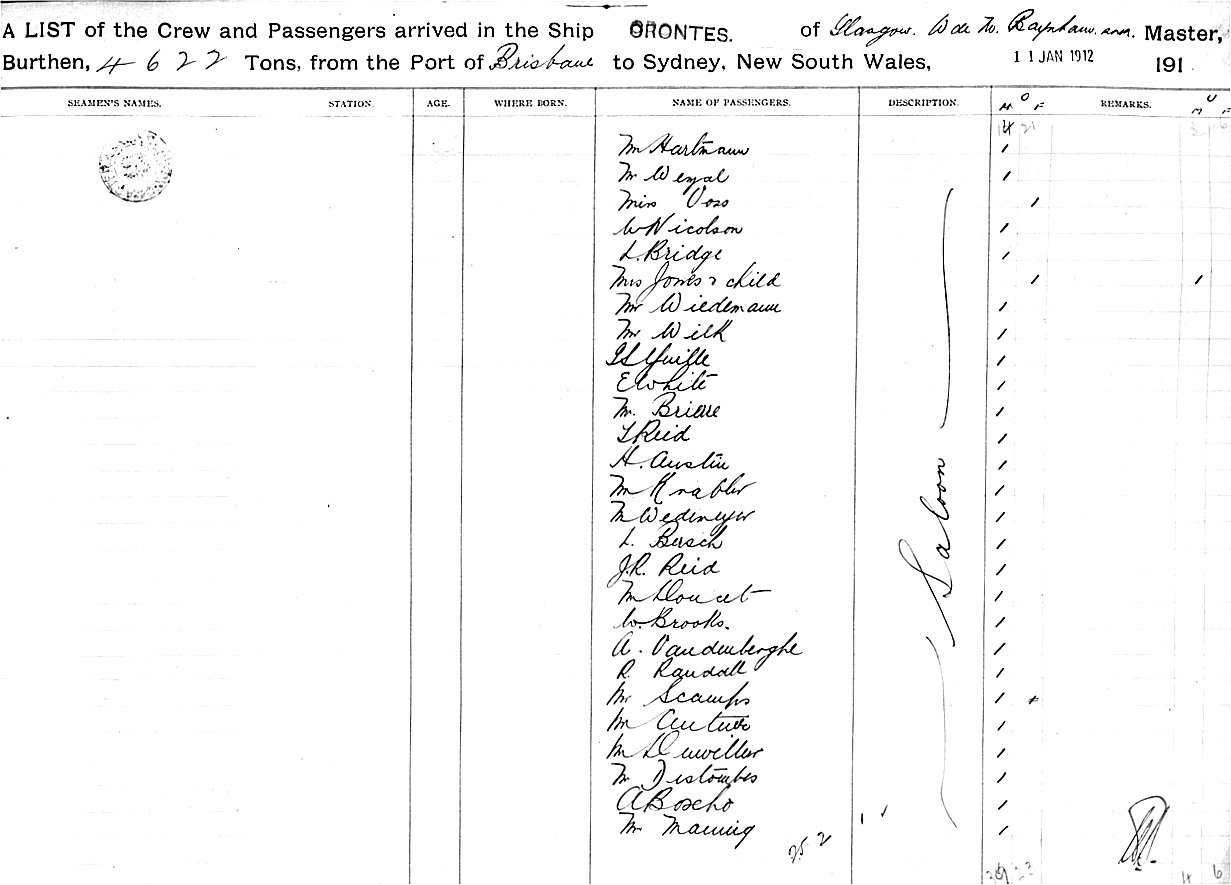 A LIST of the Crew and Passengers arrived in the Ship ORONTES. of Glasgow. Master,
Burthen, 4622 Tons, from the Port of Brisbane to Sydney, New South Wales, 11 JAN 1912 191
SEAMEN'S NAMES. STATION. AGE. WHERE BORN. NAME OF PASSENGERS. DESCRIPTION. M O F REMARKS. M U F
Mr Hartmann
Mr
Miss Voss
W Nicolson
L. Bridge
Mrs Jones & child
Mr Wiedemann
Mr Wilk
E White
Mr.
T Reid
H. Austin
Mr
Mr Wedemeyer
L. Bersch
J.R. Reid
Mr Doucet
W. Brooks.
A. Vandenberghe
R. Randall
Mr Scamps
Mr
Mr
Mr Distombes
A Boscho
Mr Manning
Saloon
25 2